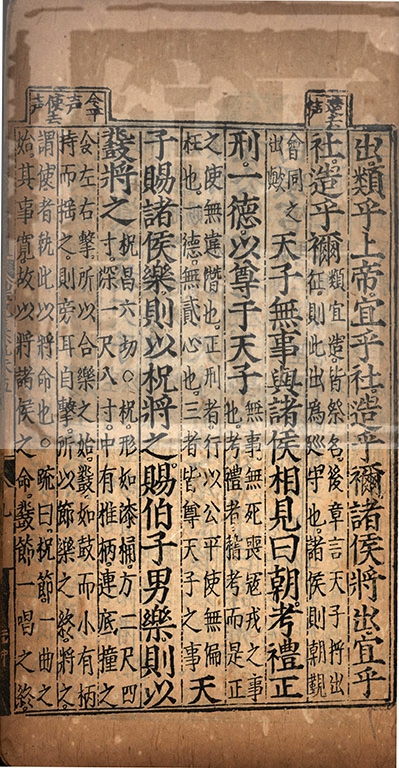 出類乎上帝宜乎社造乎禰諸侯將出宜乎
社造乎禰
類宜造皆祭名後章言天子將出
征則此出為巡守也諸侯則朝覲
會同之
出歟
天子無事與諸侯相見曰朝考禮正
刑一德以尊于天子
無事無死喪寇戎之事
也考禮者稽考而是正
之使無違僭也正刑者行以公平使無偏
枉也一德無貳心也三者皆尊天子之事
天
子賜諸侯樂則以柷將之賜伯子男樂則以
鼗將之
柷昌六切○柷形如漆桶方二尺四
寸深一尺八寸中有椎柄連底撞之
令左右擊所以合樂之始鼗如鼓而小有柄
持而搖之則旁耳自擊所以節樂之終將之
謂使者執此以將命也疏曰柷節一曲之
始其事寬故以將諸侯之命鼗節一唱之終
令平
声
使去
声